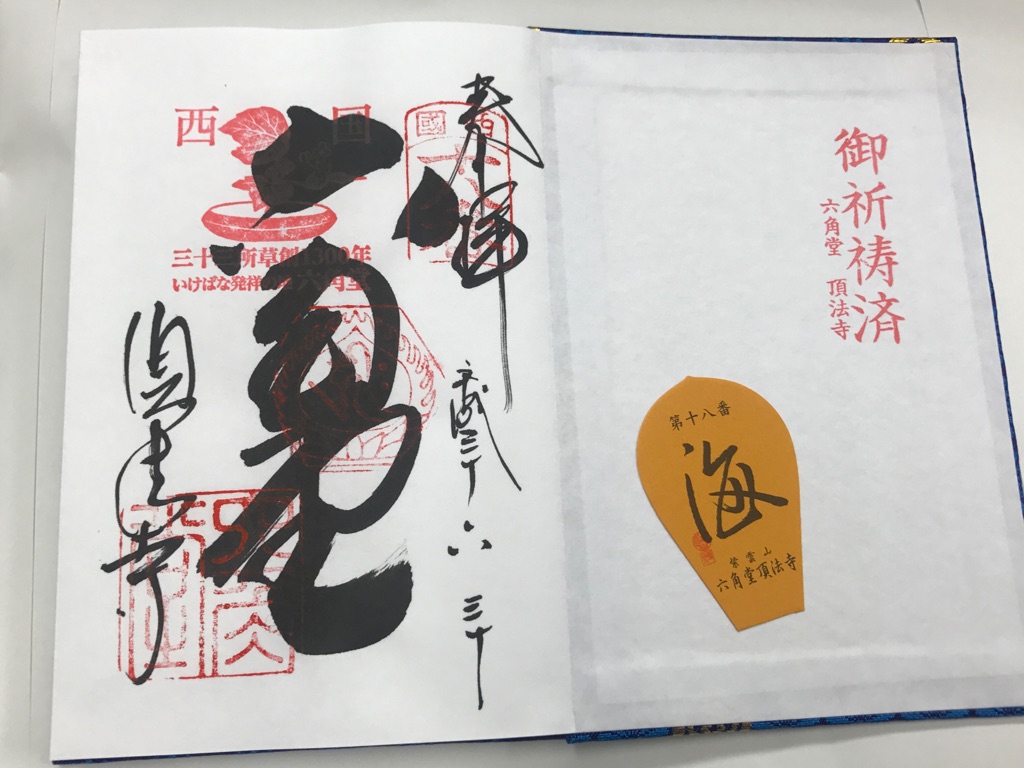 御祈祷済
六角堂 頂法寺
第十八番
海
紫雲山
六角堂頂法寺
奉拝
平成三十 六 三十
西国
三十三所草創1300年
いけばな発祥 六角堂
六角堂
頂法寺